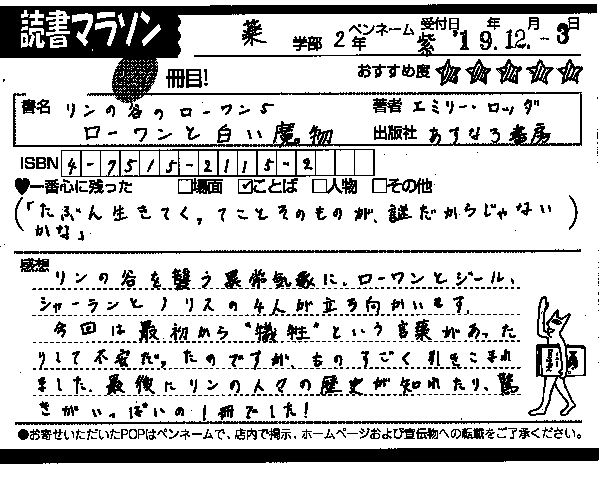 読書マラソン
薬 学部 2年 ペンネーム 紫 受付日 '19年12月-3日
冊目!
おすすめ度 ☆☆☆☆☆
書名 リンの谷のローワン5
ローワンと白い魔物
著者 エミリー・ロッダ
出版社 あすなろ書房
ISBN 4-7515-2115-2
♥一番心に残った □場面 ☑ことば □人物 □その他
(「たぶん生きてくってことそのものが、謎だからじゃない
かな」)
感想
リンの谷を襲う異常気象に、ローワンとジール、
シャーランとノリスの4人が立ち向かいます。
今回は最初から"犠牲"という言葉があった
りして不安だったのですが、ものすごく引きこまれ
ました。最後にリンの人々の歴史が知れたり、驚
きがいっぱいの1冊でした!
●お寄せいただいたPOPはペンネームで、店内で掲示、ホームページおよび宣伝物への転載をご了承ください。